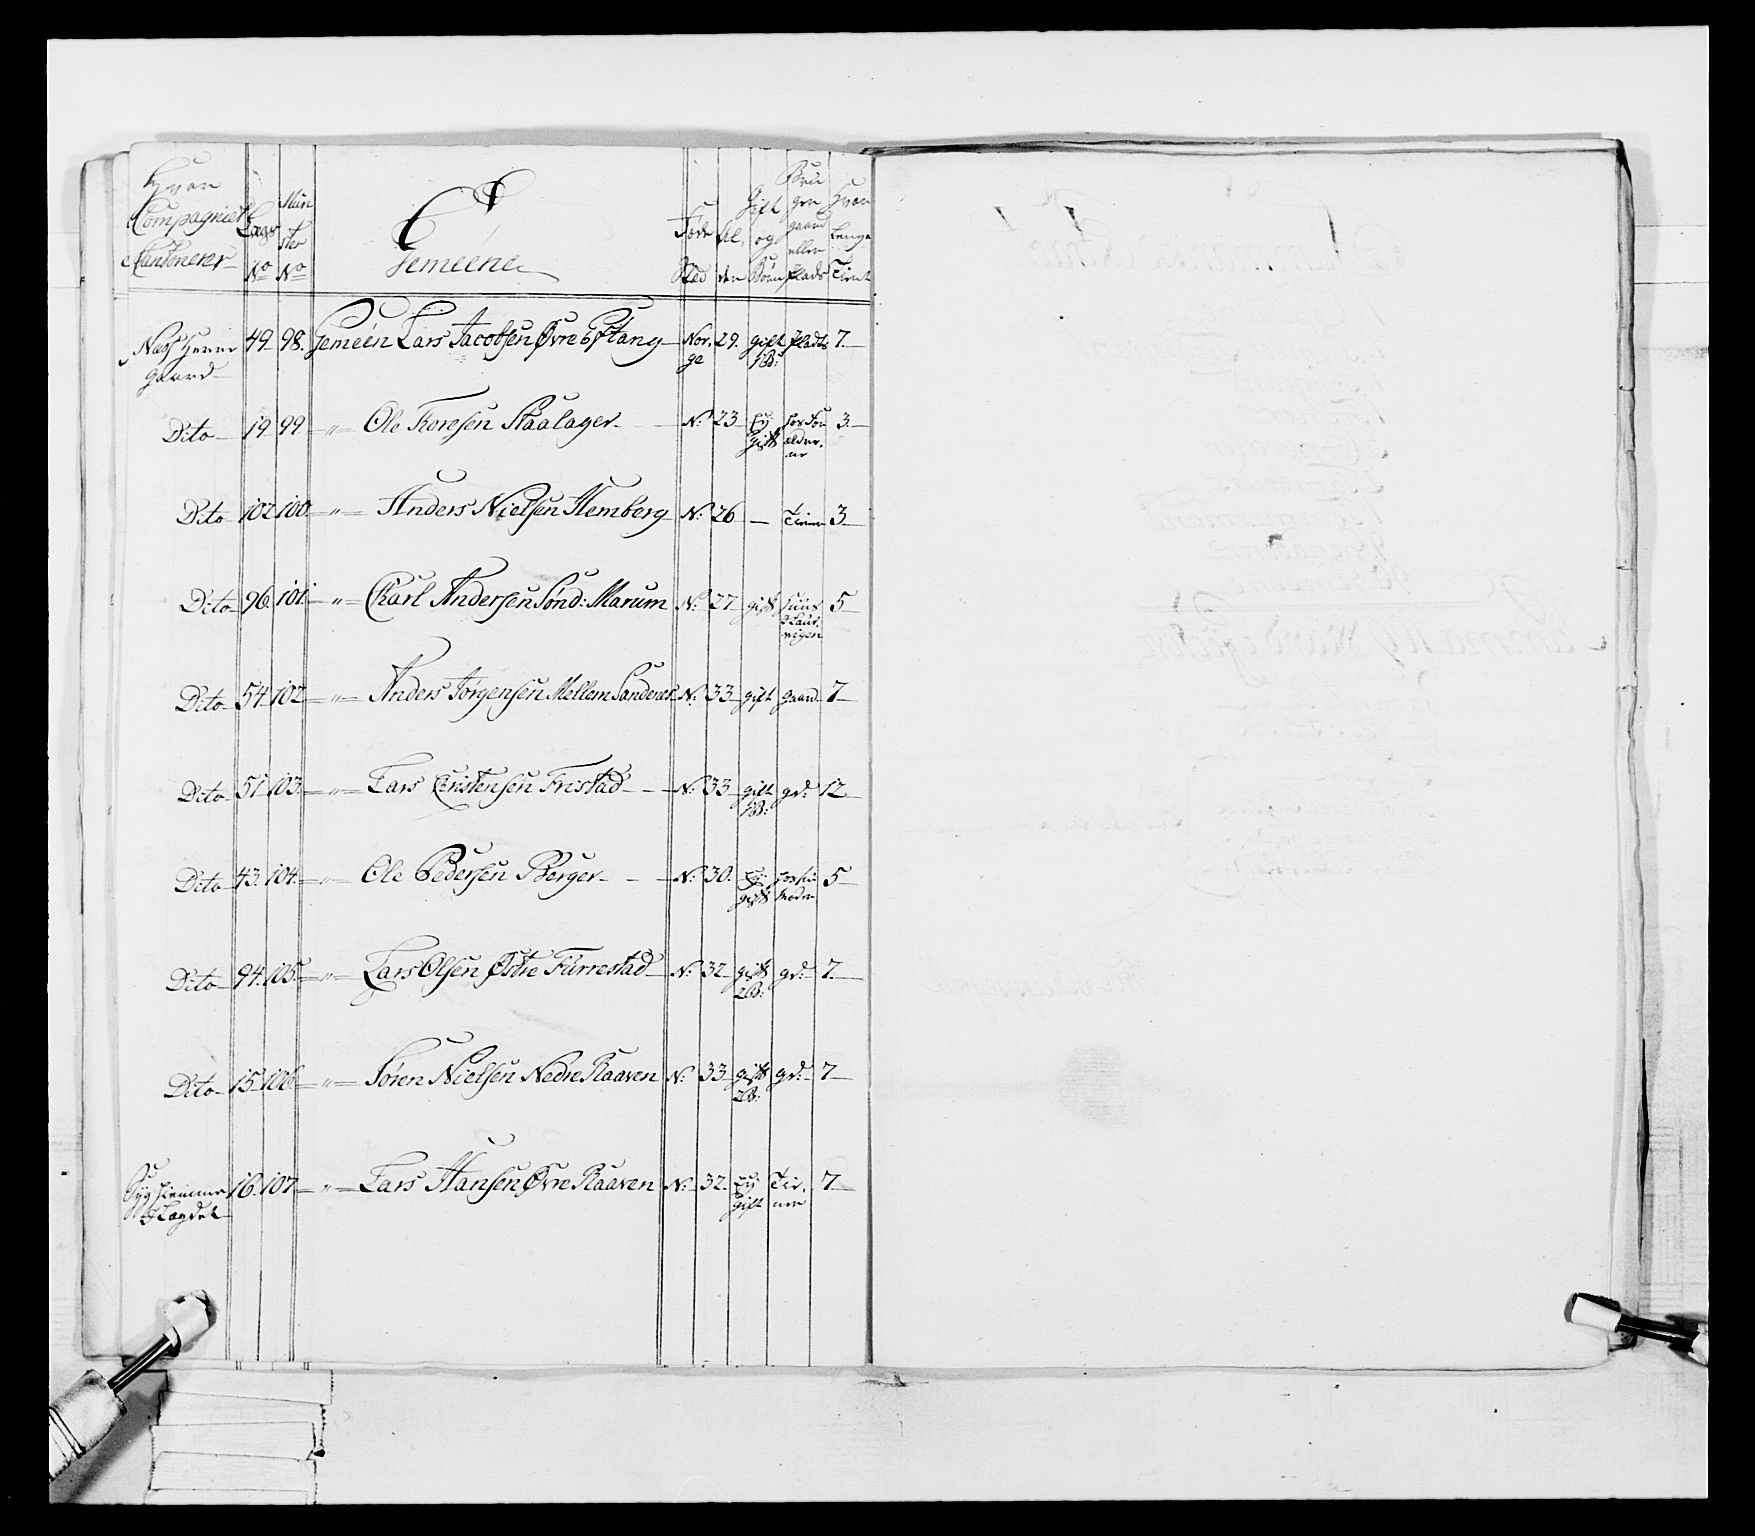 Hvor Compagniet Cantonerer | Lægs No | Mün ster No | Gemeene | Føde Sted | Al, der | Gift og Börn | Brü ger gaard eller Plads | Hvor lenge Tient
Næss Herre gaard | 49 | 98. | Gemeen Lars Jacobsen Øvre Stang | Nor, ge | 29. | gift 1B: | Plads | 7.
Dito | 19 | 99 | " Ole Toresen Staalager | N: | 23 | Ey gift | hos For ældre, ne | 3.
Dito | 102 | 100. | " Anders Nielsen Hemberg | N: | 26 | — | Tiener | 3
Dito | 96. | 101. | " Charl Andersen Sönd: Marum | N: | 27 | gift | huus I Laur, vigen | 5
Dito | 54 | 102 | " Anders Jörgensen Mellem Sanderød | N: | 33 | gift | gaard | 7
Dito | 51 | 103. | " Lars Christensen Fristad | N: | 33 | gift 1B: | gd: | 12
Dito | 43. | 104. | " Ole Pedersen Berger | N: | 30. | Ey gift | hos sin Moder | 5
Dito | 94. | 105. | " Lars Olsen Østre Fürrestad | N: | 32 | gift 2B: | gd: | 7.
Dito | 15 | 106 | " Sören Nielsen Nedre Raaven | N: | 33 | gift 2B: | gd: | 7
Syg hiemme I Lægdet | 16. | 107 | " Lars Hansen Øvre Raaven | N: | 32. | Ey gift | Tie, ner | 7